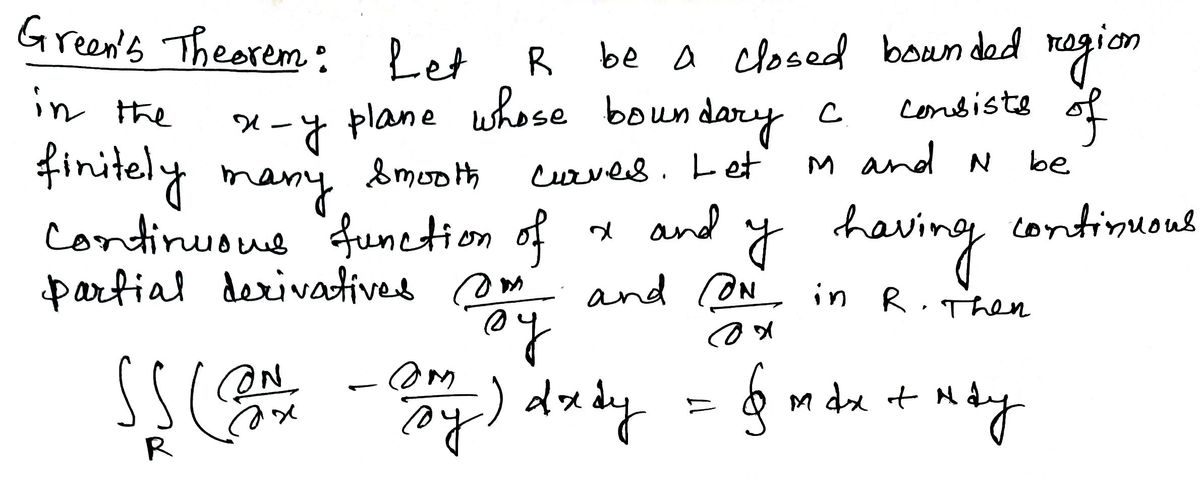 Green's Theorem: Let R be a closed bounded region
in the x-y plane whose boundary C consists of
finitely many smooth curves. Let M and N be
continuous function of x and y having continuous
partial derivatives ∂M/∂y and ∂N/∂x in R. Then
∬_R (∂N/∂x - ∂M/∂y) dxdy = ∮ M dx + N dy